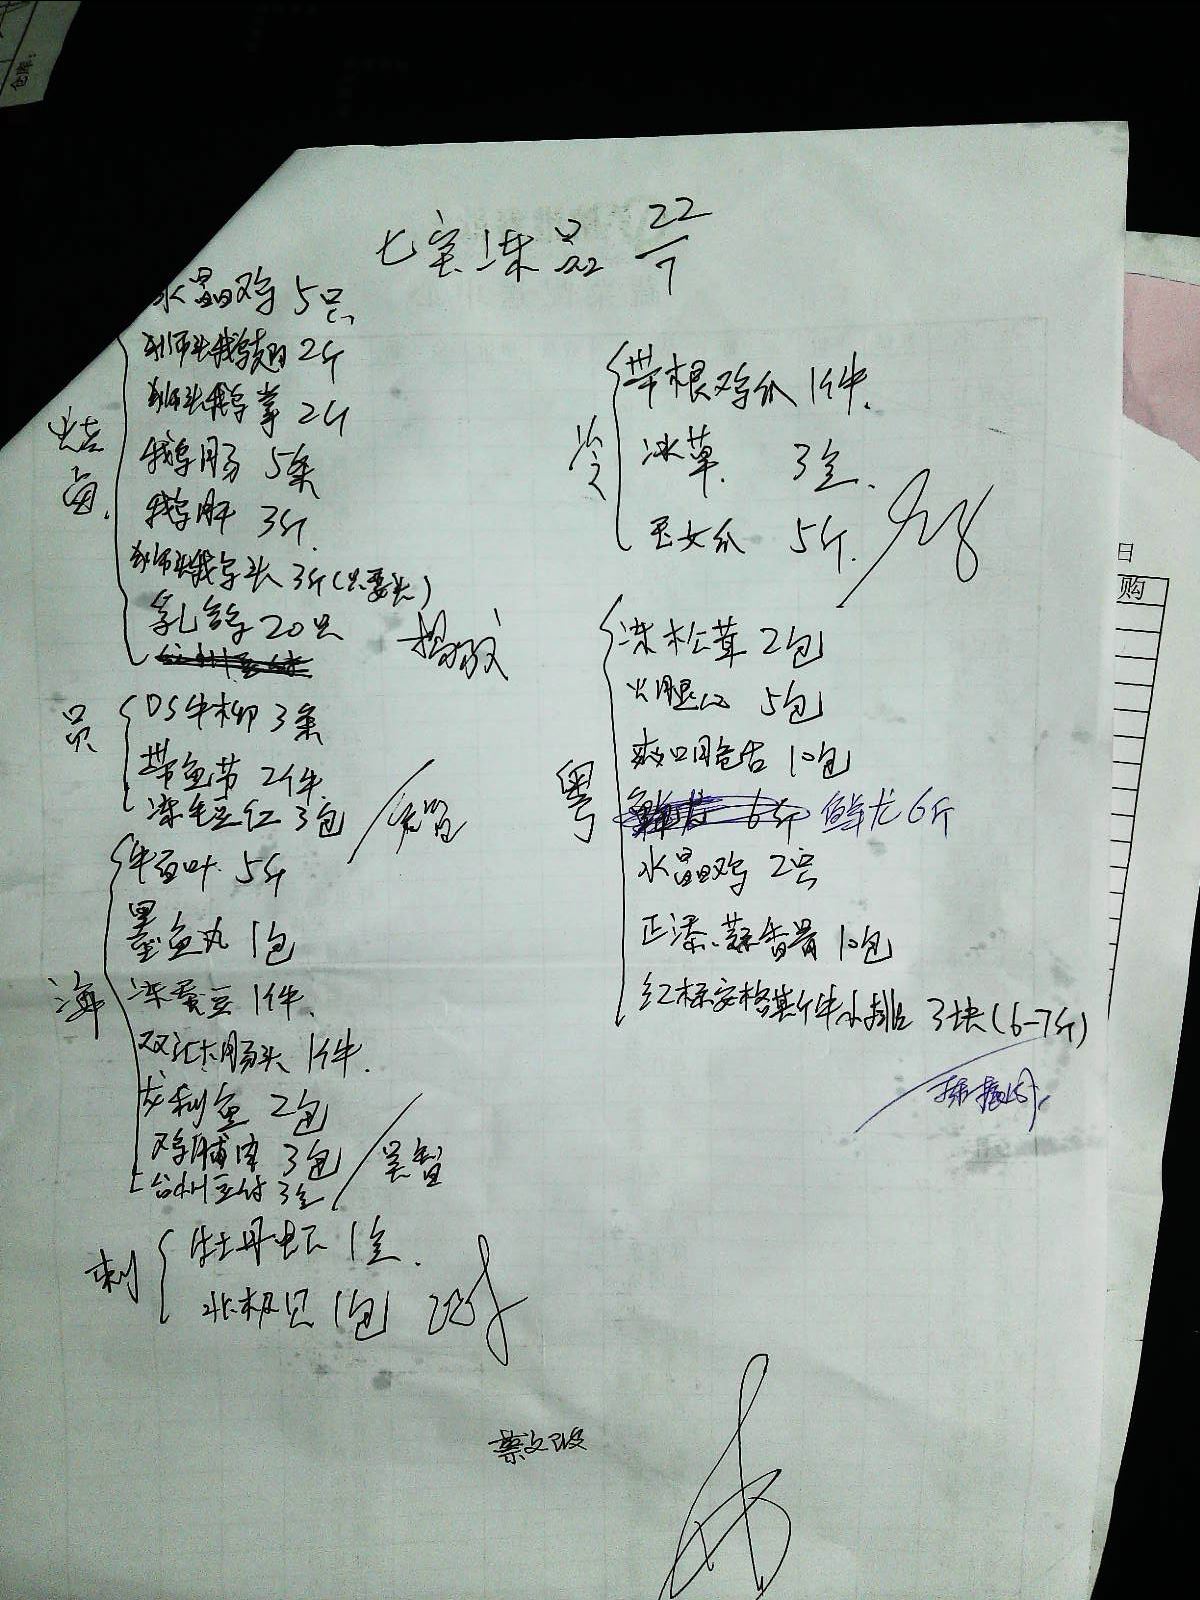 七宝冻品 22/7
水晶鸡 5只
狮头鹅翅 2斤
狮头鹅掌 2斤
鹅肠 5条
鹅肝 3斤
狮头鹅头 3斤(只要头)
乳鸽 20只
烧
员
DS牛柳 3条
带鱼节 2件
冻毛豆仁 3包
海
牛百叶 5斤
墨鱼丸 1包
冻蚕豆 1件
双汇大肠头 1件
龙利鱼 2包
鸡脯肉 3包
台州豆付 3盒
吴智
刺
牡丹虾 1盒
北极贝 1包
冷
带根鸡爪 1件
冰草 3盒
玉女瓜 5斤
粤
冻松茸 2包
火腿 5包
爽口 10包
鲜龙 6斤
水晶鸡 2只
蒜香骨 10包
红标安格斯牛小排 3块(6-7斤)
日
购
仓库: